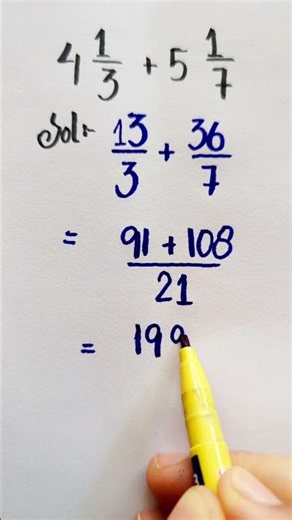 4 1/3 + 5 1/7
Sol:- 13/3 + 36/7
= 91 + 108/21
= 199